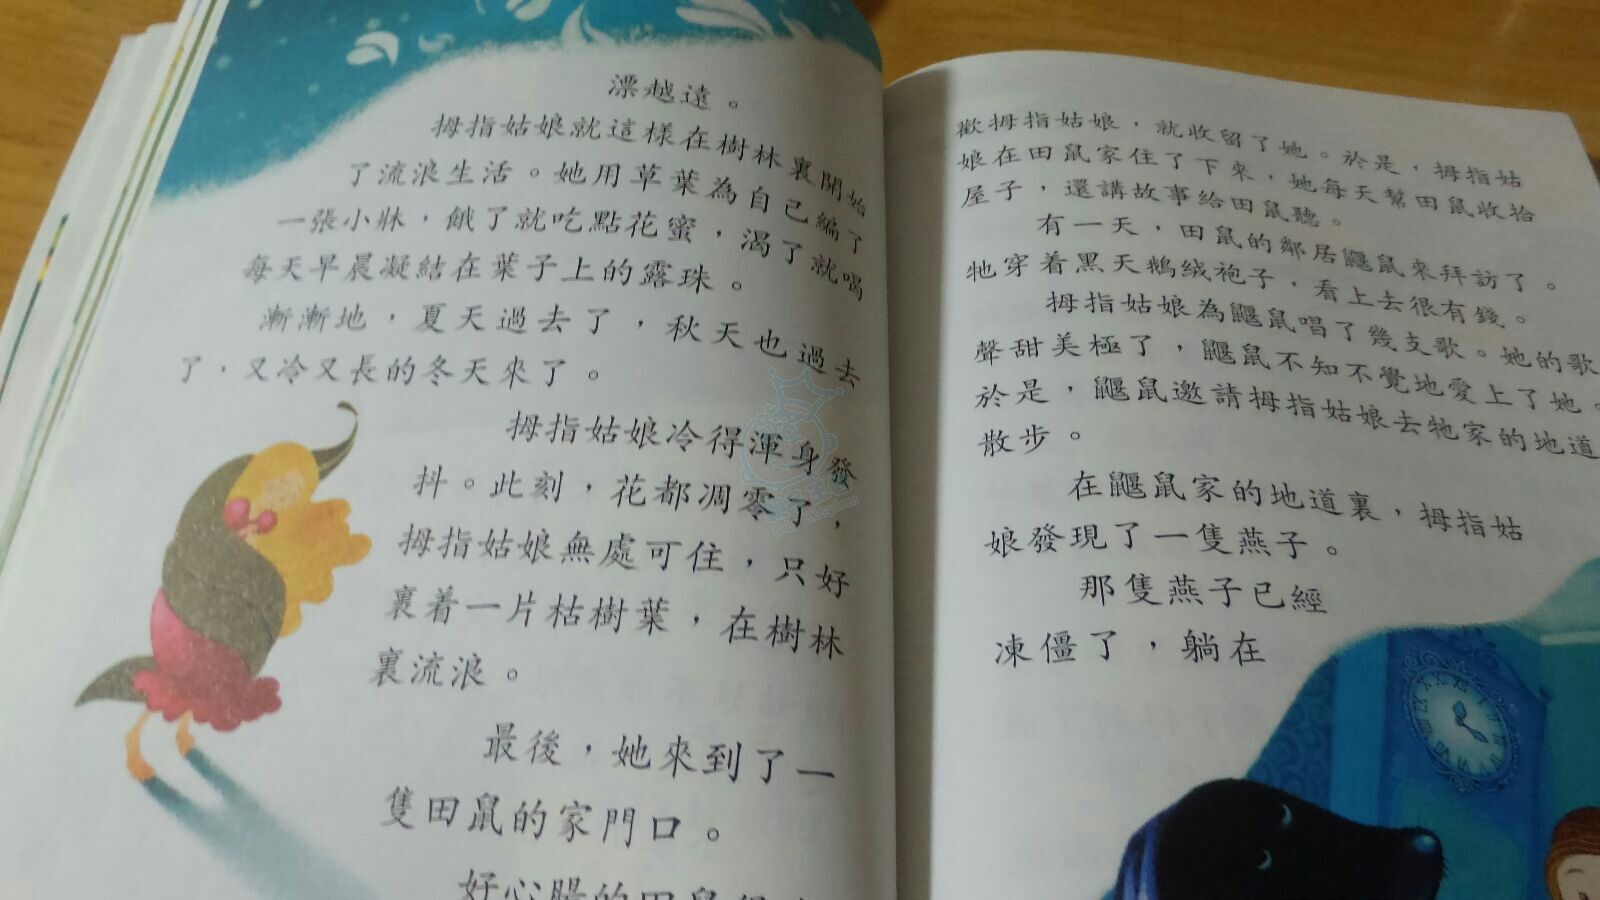 漂越遠。
拇指姑娘就這樣在樹林裏開始
了流浪生活。她用草葉為自己編了
一張小牀，餓了就吃點花蜜，渴了就喝
每天早晨凝結在葉子上的露珠。
漸漸地，夏天過去了，秋天也過去
了，又冷又長的冬天來了。
拇指姑娘冷得渾身發
抖。此刻，花都凋零了，
拇指姑娘無處可住，只好
裹着一片枯樹葉，在樹林
裏流浪。
最後，她來到了一
隻田鼠的家門口。
好心腸的田鼠很
歡拇指姑娘，就收留了她。於是，拇指姑
娘在田鼠家住了下來，她每天幫田鼠收拾
屋子，還講故事給田鼠聽。
有一天，田鼠的鄰居鼴鼠來拜訪了。
牠穿着黑天鵝絨袍子，看上去很有錢。
拇指姑娘為鼴鼠唱了幾支歌。她的歌
聲甜美極了，鼴鼠不知不覺地愛上了她。
於是，鼴鼠邀請拇指姑娘去牠家的地道
散步。
在鼴鼠家的地道裏，拇指姑
娘發現了一隻燕子。
那隻燕子已經
凍僵了，躺在